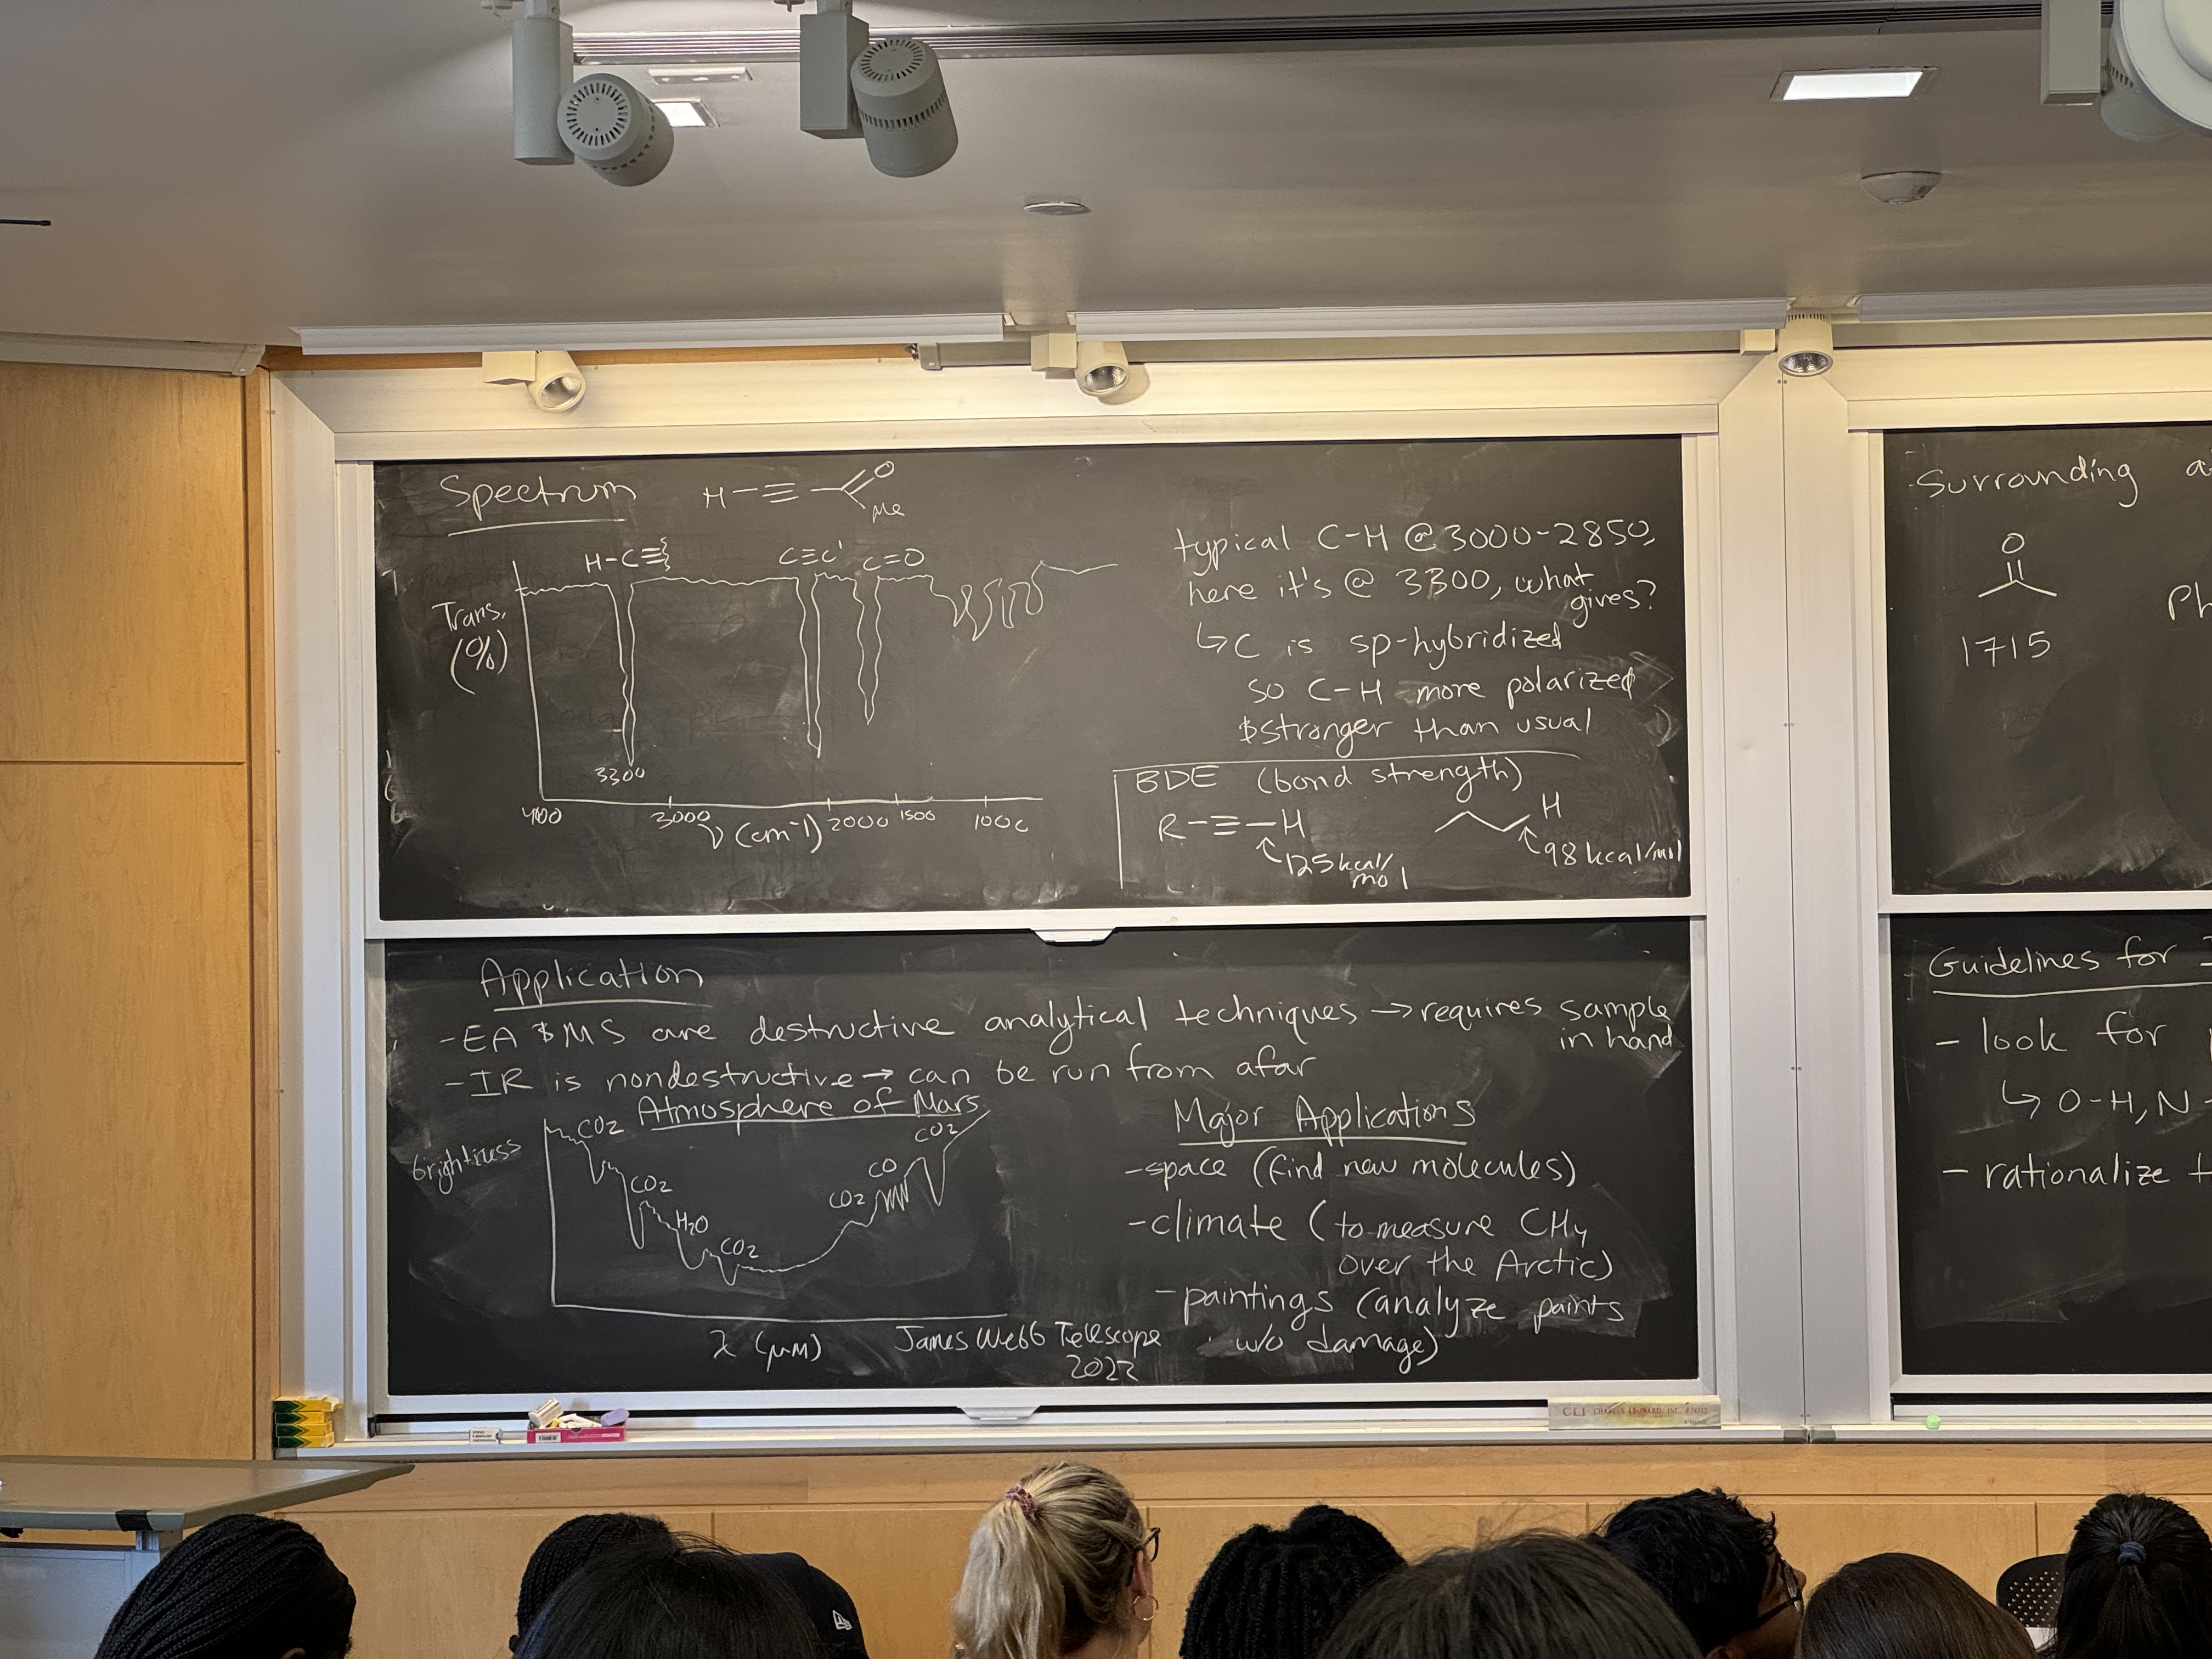 Spectrum
H-≡-
O
Me
H-C≡
C≡C
C=O
Trans.
(%)
3300
3000
2000
1500
1000
ν (cm⁻¹)
typical C-H @ 3000-2850,
here it's @ 3300, what
gives?
↳ C is sp-hybridized
so C-H more polarized
& stronger than usual
BDE (bond strength)
R-≡-H
125 kcal/
mol
H
98 kcal/mol
Application
-EA & MS are destructive analytical techniques → requires sample
in hand
-IR is nondestructive → can be run from afar
Atmosphere of Mars
brightness
CO2
CO2
H2O
CO2
CO2
CO
CO2
λ (μM)
James Webb Telescope
2022
Major Applications
-space (find new molecules)
-climate (to measure CH4
over the Arctic)
-paintings (analyze paints
w/o damage)
Surrounding
O
1715
Ph
Guidelines for
- look for
↳ O-H, N-
- rationalize
CLI CHARLES LEONARD, INC.